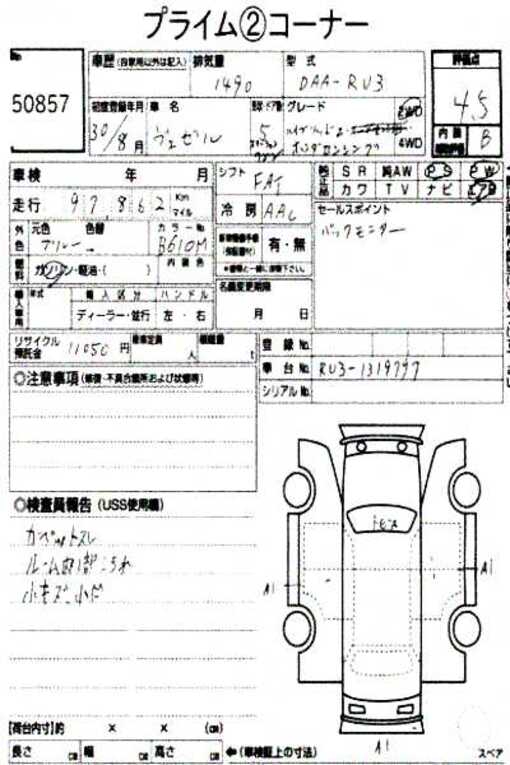 プライム②コーナー
No
50857
車歴 (自家用以外は記入)
排気量
1490
型式
DAA-RU3
評価点
4.5
初度登録年月
30/8月
車名
ヴェゼル
ドア数
5
グレード
ホンダセンシング
2WD
4WD
内装
B
車検 年 月
シフト
FAT
SR 純AW PS PW
カワ TV ナビ エアB
走行
97,862
Km
マイル
冷房
AAC
セールスポイント
バックモニター
外色
元色
ブルー
色替
カラーNo
B610M
有・無
燃料
ガソリン・軽油・( )
内装色
名義変更期限
月 日
輸入車用
年式
輸入区分
ハンドル
ディーラー・並行
左・右
リサイクル預託金
11050円
乗車定員
人
積載量
t
登録No.
車台No.
RU3-1319797
シリアルNo.
◎注意事項 (修復・不具合箇所および状態等)
◎検査員報告 (USS使用欄)
小キズ 小凹
トビ石
A1
A1
A1
【荷台内寸】約 × × (cm)
長さ cm 幅 cm 高さ cm
←(車検証上の寸法)
スペア